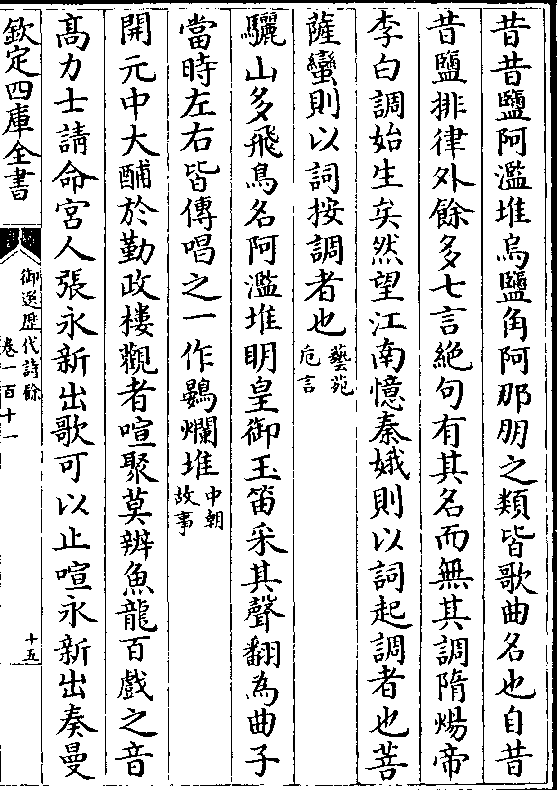 昔昔鹽阿濫堆烏鹽角阿那朋之類皆歌曲名也自昔
昔鹽排律外餘多七言絕句有其名而無其調隋煬帝
李白調始生矣然望江南憶秦娥則以詞起調者也菩
薩蠻則以詞按調者也藝苑卮言
驪山多飛鳥名阿濫堆明皇御玉笛采其聲翻為曲子
當時左右皆傳唱之一作鷃爛堆中朝故事
開元中大酺於勤政樓觀者喧聚莫辨魚龍百戲之音
髙力士請命宮人張永新出歌可以止喧永新出奏曼
欽定四庫全書
御選歷代詩餘
卷一百十一
十五